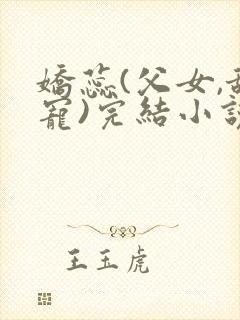 嬌蕊(父女,甜
寵)完結小說
王玉虎